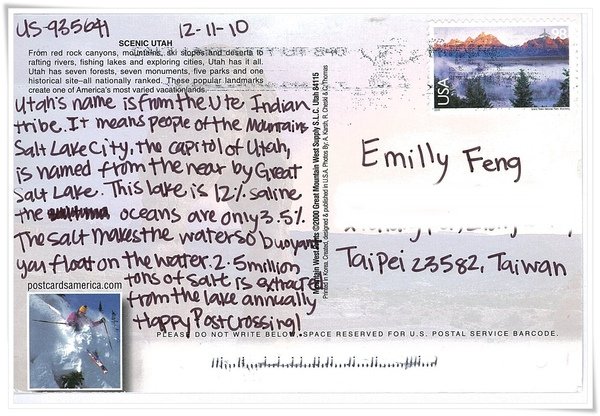 US-935641 12-11-10
SCENIC UTAH
From red rock canyons, mountains, ski slopes and deserts to
rafting rivers, fishing lakes and exploring cities, Utah has it all.
Utah has seven forests, seven monuments, five parks and one
historical site–all nationally ranked. These popular landmarks
create one of America's most varied vacationlands.
Utah's name is from the Ute Indian
tribe. It means people of the Mountains
Salt Lake City, the capitol of Utah,
is named from the near by Great
Salt Lake. This lake is 12% saline
the oceans are only 3.5%.
The salt makes the water so buoyant
you float on the water. 2.5 million
tons of salt is extracted
from the lake annually
Happy PostCrossing!
postcardsamerica.com
Mountain West Prints ©2000 Great Mountain West Supply S.L.C. Utah 84115
Printed in Korea. Created, designed & published in U.S.A. Photos By: A. Karsh, R. Cheski & C. Thomas
USA
98
Emilly Feng
Taipei 23582, Taiwan
PLEASE DO NOT WRITE BELOW, SPACE RESERVED FOR U.S. POSTAL SERVICE BARCODE.